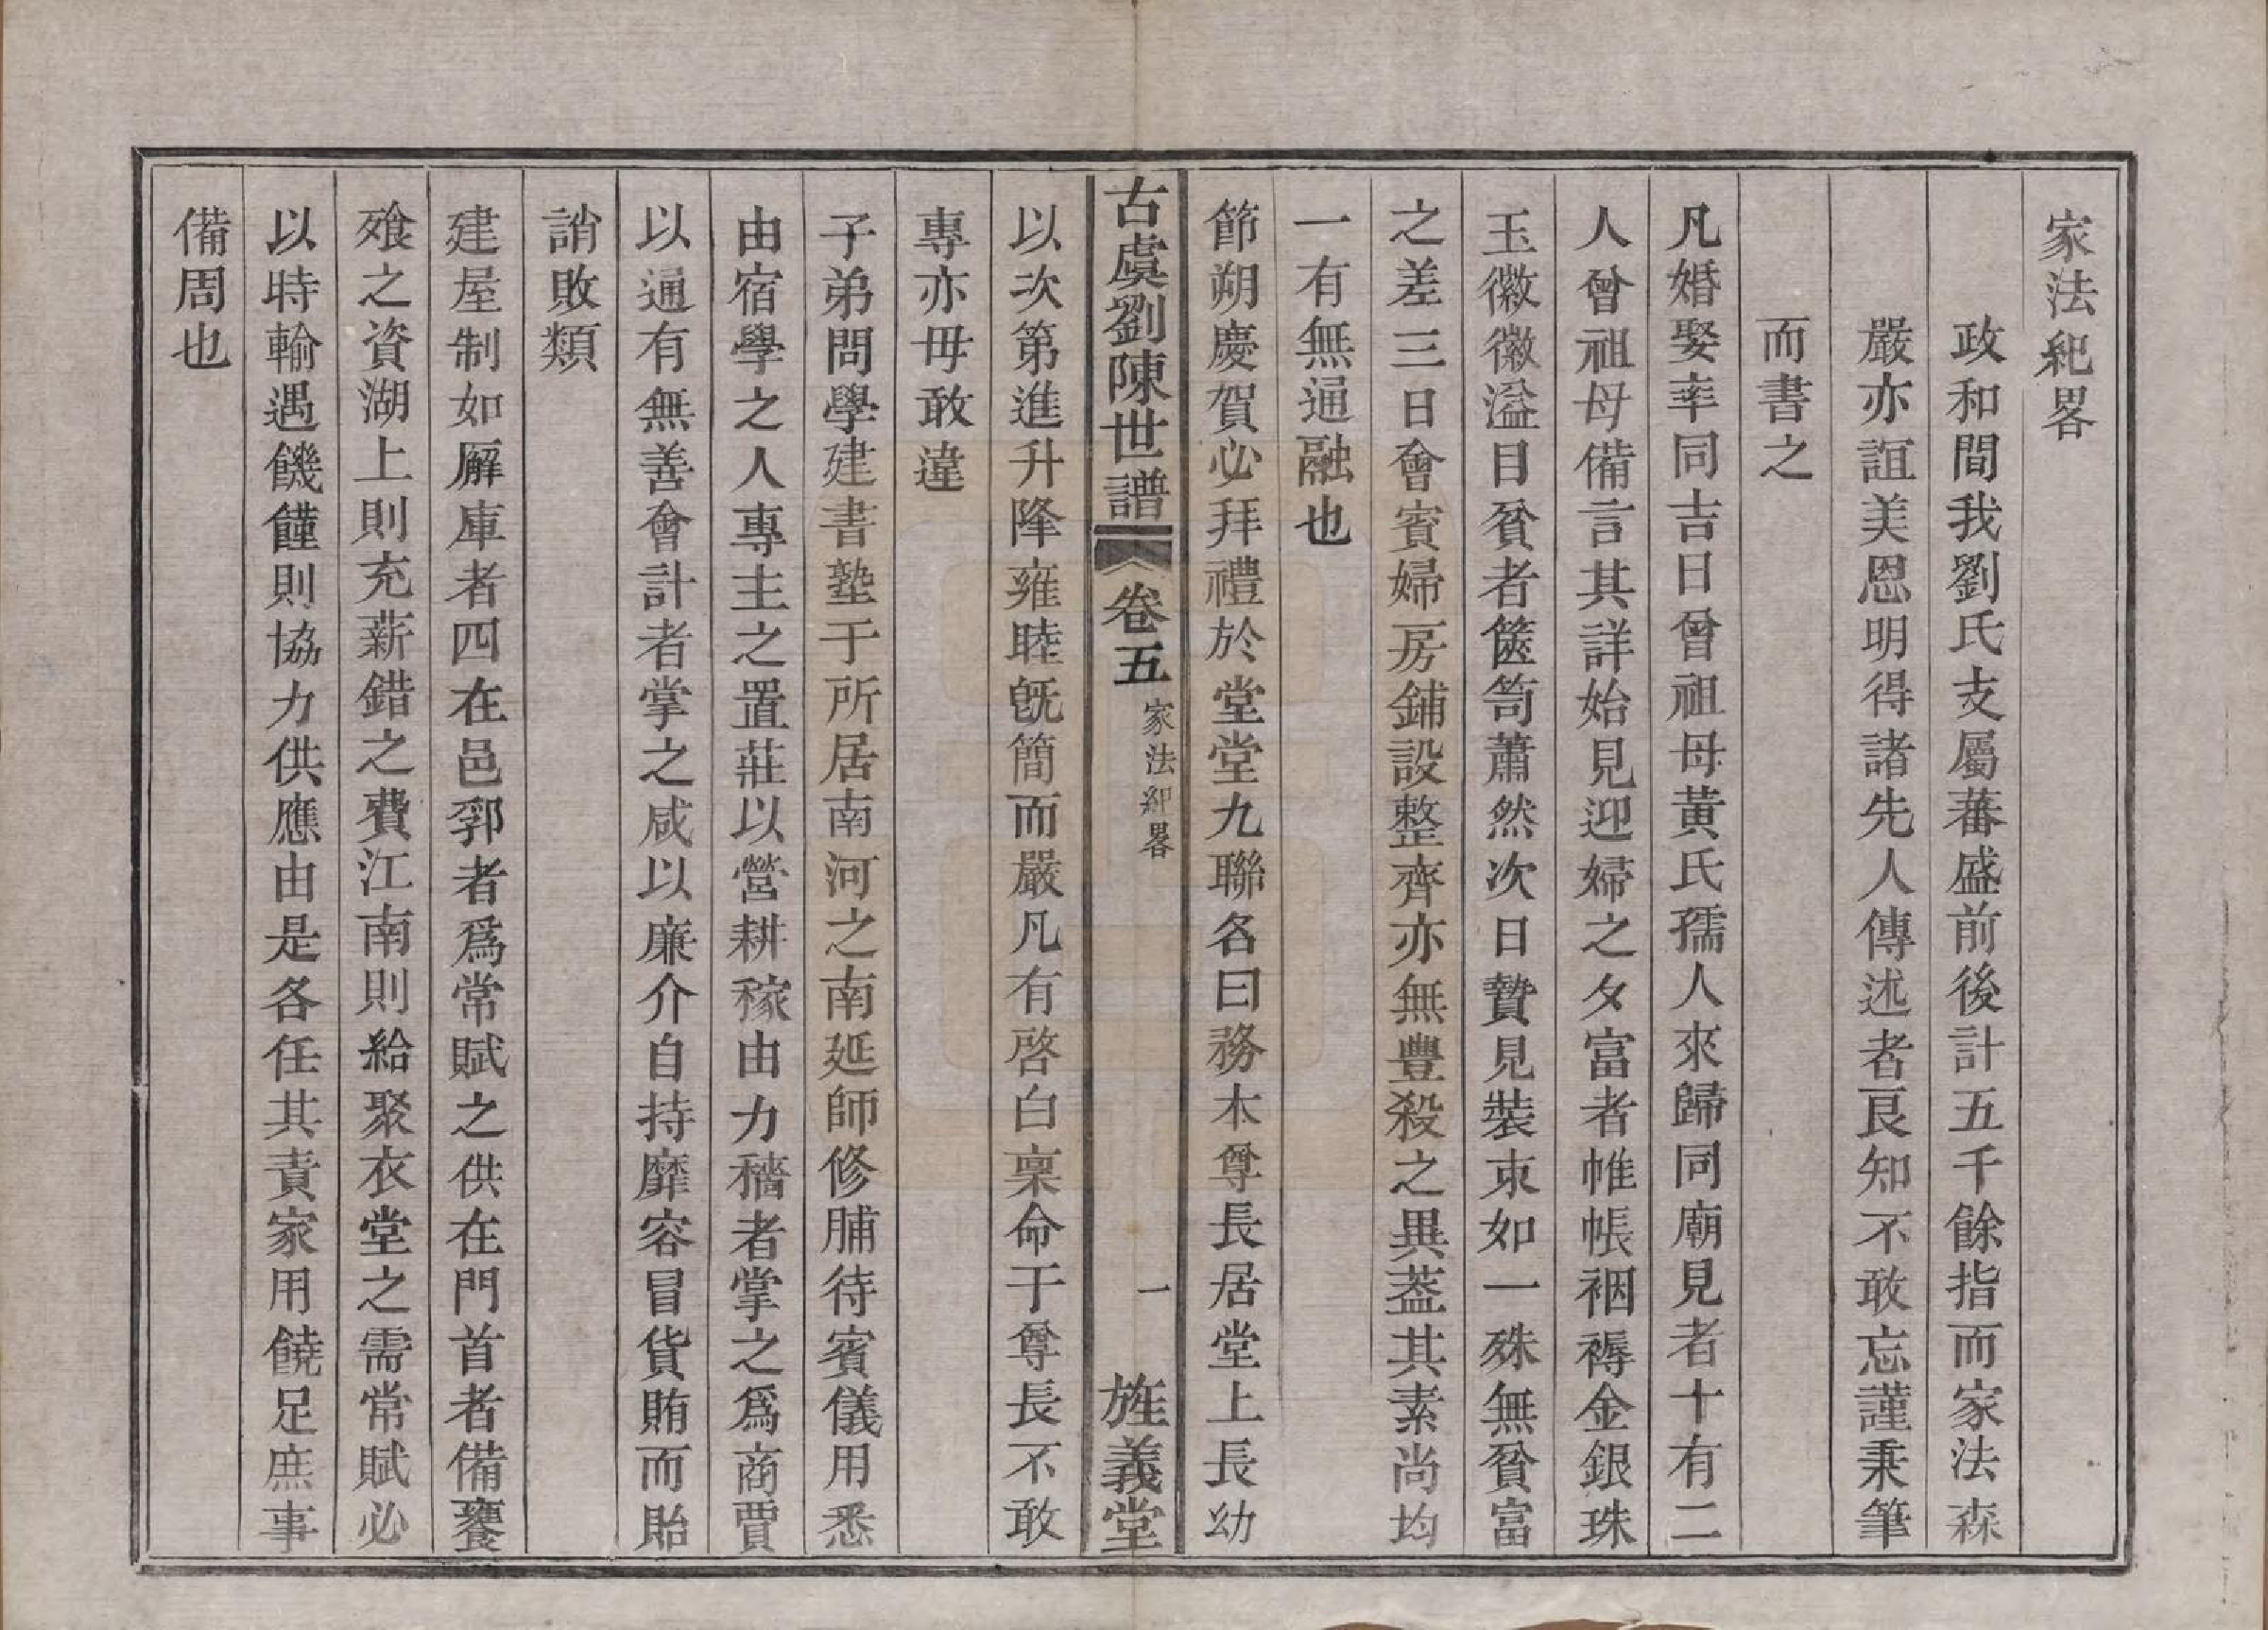 家法紀畧
政和間我劉氏支屬蕃盛前後計五千餘指而家法森
嚴亦誼美恩明得諸先人傳述者艮知不敢忘謹秉筆
而書之
凡婚娶率同吉日曾祖母黃氏孺人來歸同廟見者十有二
人曾祖母備言其詳始見迎婦之夕富者帷帳裀褥金銀珠
玉徽徽溢目貧者篋笥蕭然次日贄見裝束如一殊無貧富
之差三日會賓婦房鋪設整齊亦無豐殺之異葢其素尚均
一有無通融也
節朔慶賀必拜禮於堂堂九聯各曰務本尊長居堂上長幼
古虞劉陳世譜 卷五 家法紀畧 一 旌義堂
以次第進升降雍睦旣簡而嚴凡有啓白稟命于尊長不敢
專亦毋敢違
子弟問學建書塾于所居南河之南延師修脯待賓儀用悉
由宿學之人專主之置莊以營耕稼由力穡者掌之爲商賈
以通有無善會計者掌之咸以廉介自持靡容冒貨賄而貽
誚敗類
建屋制如廨庫者四在邑郛者爲常賦之供在門首者備饔
飱之資湖上則充薪錯之費江南則給聚衣堂之需常賦必
以時輸遇饑饉則協力供應由是各任其責家用饒足庶事
備周也